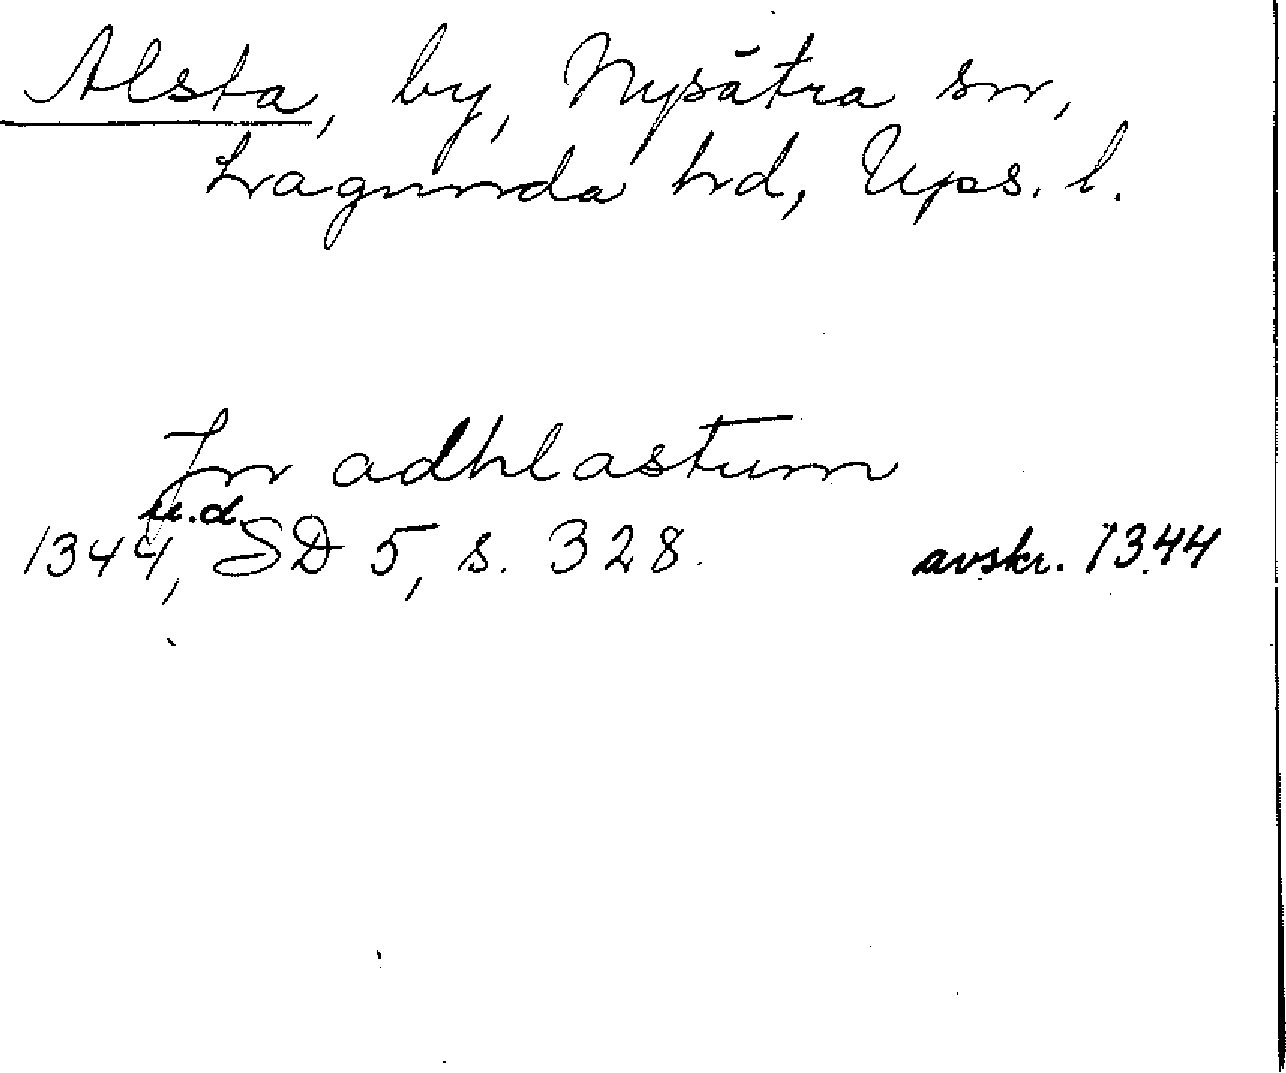 Alsta, by, Nysätra sn,
Lagunda hd, Ups. l.
Jn adhlastum
u.d.
1344, SD 5, s. 328. avskr. 1344